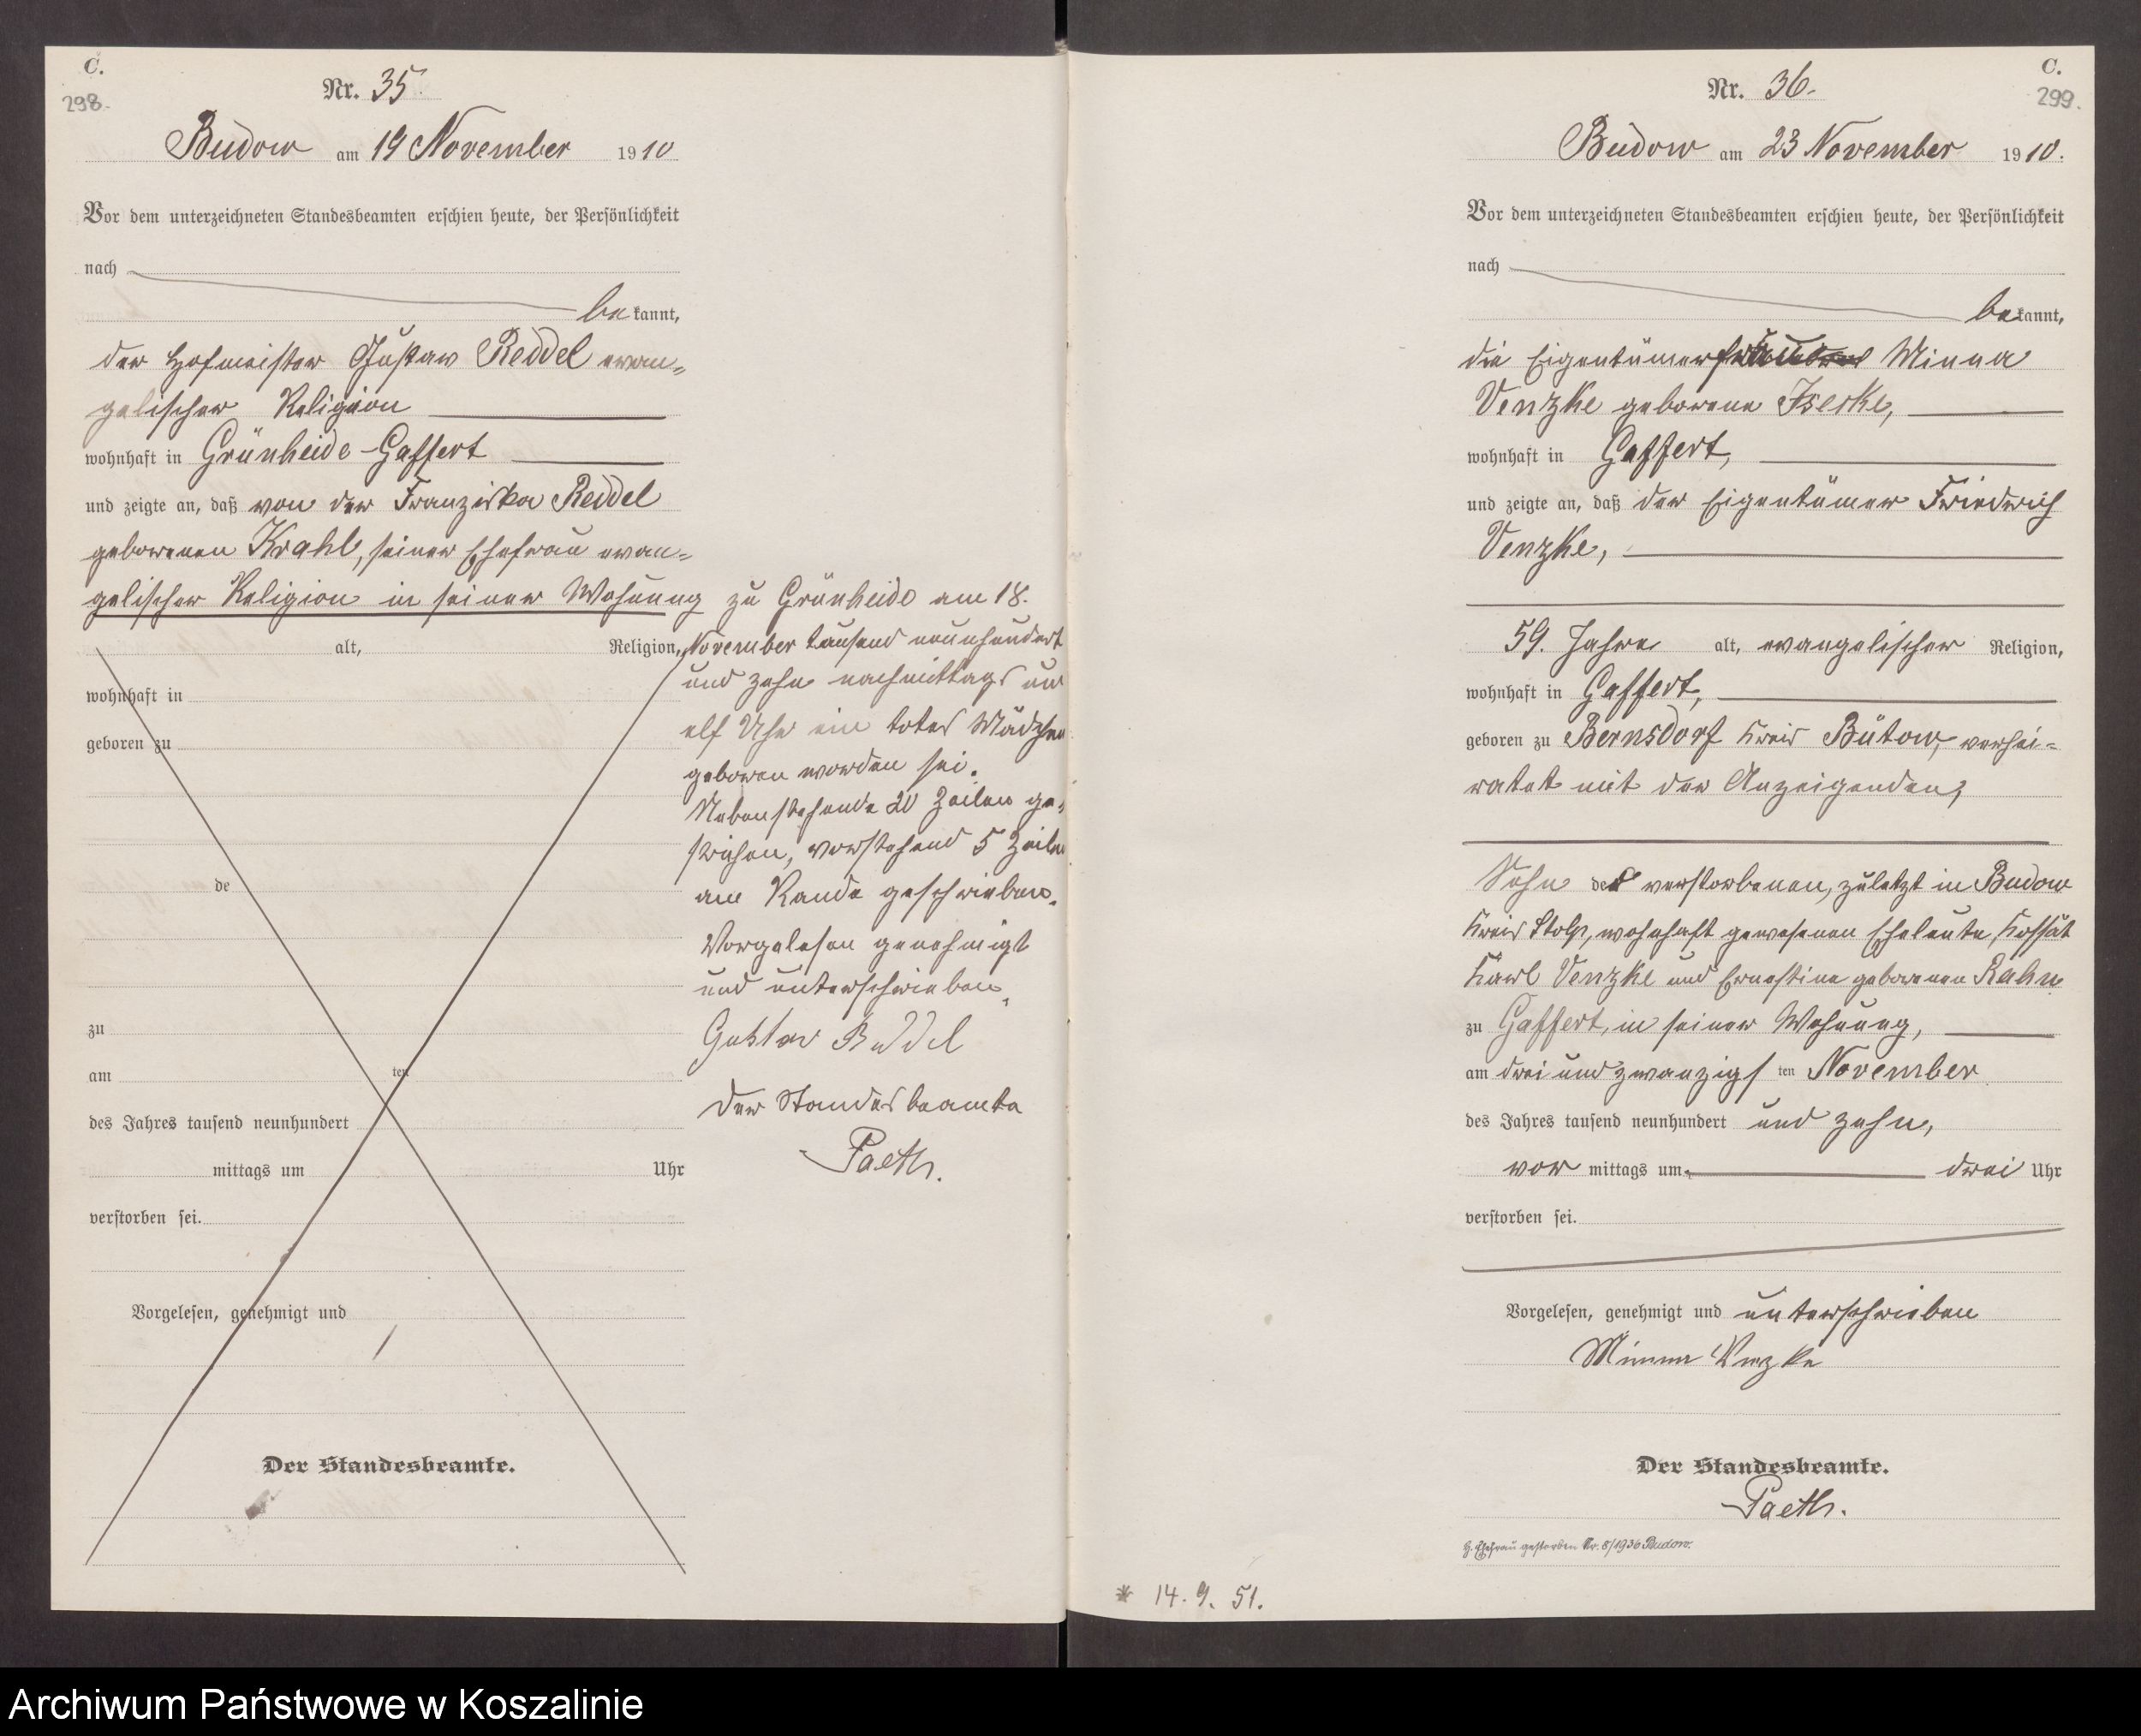 C.
298.
Nr. 35.
Budow am 19 November 1910
Vor dem unterzeichneten Standesbeamten erschien heute, der Persönlichkeit
nach
bekannt,
der Hofmeister Gustav Reddel evan-
gelischer Religion
wohnhaft in Grünheide-Gaffert
und zeigte an, daß von der Franziska Reddel
geborenen Krahl, seiner Ehefrau evan-
gelischer Religion in seiner Wohnung zu Grünheide am 18.
alt, Religion,
wohnhaft in
geboren zu
de
zu
am ten
des Jahres tausend neunhundert
mittags um Uhr
verstorben sei.
Vorgelesen, genehmigt und
Der Standesbeamte.
November tausend neunhundert
und zehn nachmittags um
elf Uhr ein totes Mädchen
geboren worden sei.
Nebenstehende 20 Zeilen ge-
strichen, vorstehend 5 Zeilen
am Rande geschrieben.
Vorgelesen genehmigt
und unterschrieben
Gustav Reddel
Der Standesbeamte
Paeth.
C.
299.
Nr. 36.
Budow am 23 November 1910.
Vor dem unterzeichneten Standesbeamten erschien heute, der Persönlichkeit
nach
bekannt,
die Eigentümer Minna
Venzke geborene Iserke,
wohnhaft in Gaffert,
und zeigte an, daß der Eigentümer Friedrich
Venzke,
59. Jahre alt, evangelischer Religion,
wohnhaft in Gaffert,
geboren zu Bernsdorf Kreis Bütow, verhei-
ratet mit der Anzeigenden,
Sohn der verstorbenen, zuletzt in Budow
Kreis Stolp, wohnhaft gewesenen Eheleute, Kossät
Karl Venzke und Ernestine geborenen Rahn
zu Gaffert, in seiner Wohnung,
am drei und zwanzigsten November
des Jahres tausend neunhundert und zehn,
vor mittags um drei Uhr
verstorben sei.
Vorgelesen, genehmigt und unterschrieben
Minna Venzke
Der Standesbeamte.
Paeth.
Ehefrau gestorben Nr. 8/1936 Budow.
* 14. 9. 51.
Archiwum Państwowe w Koszalinie